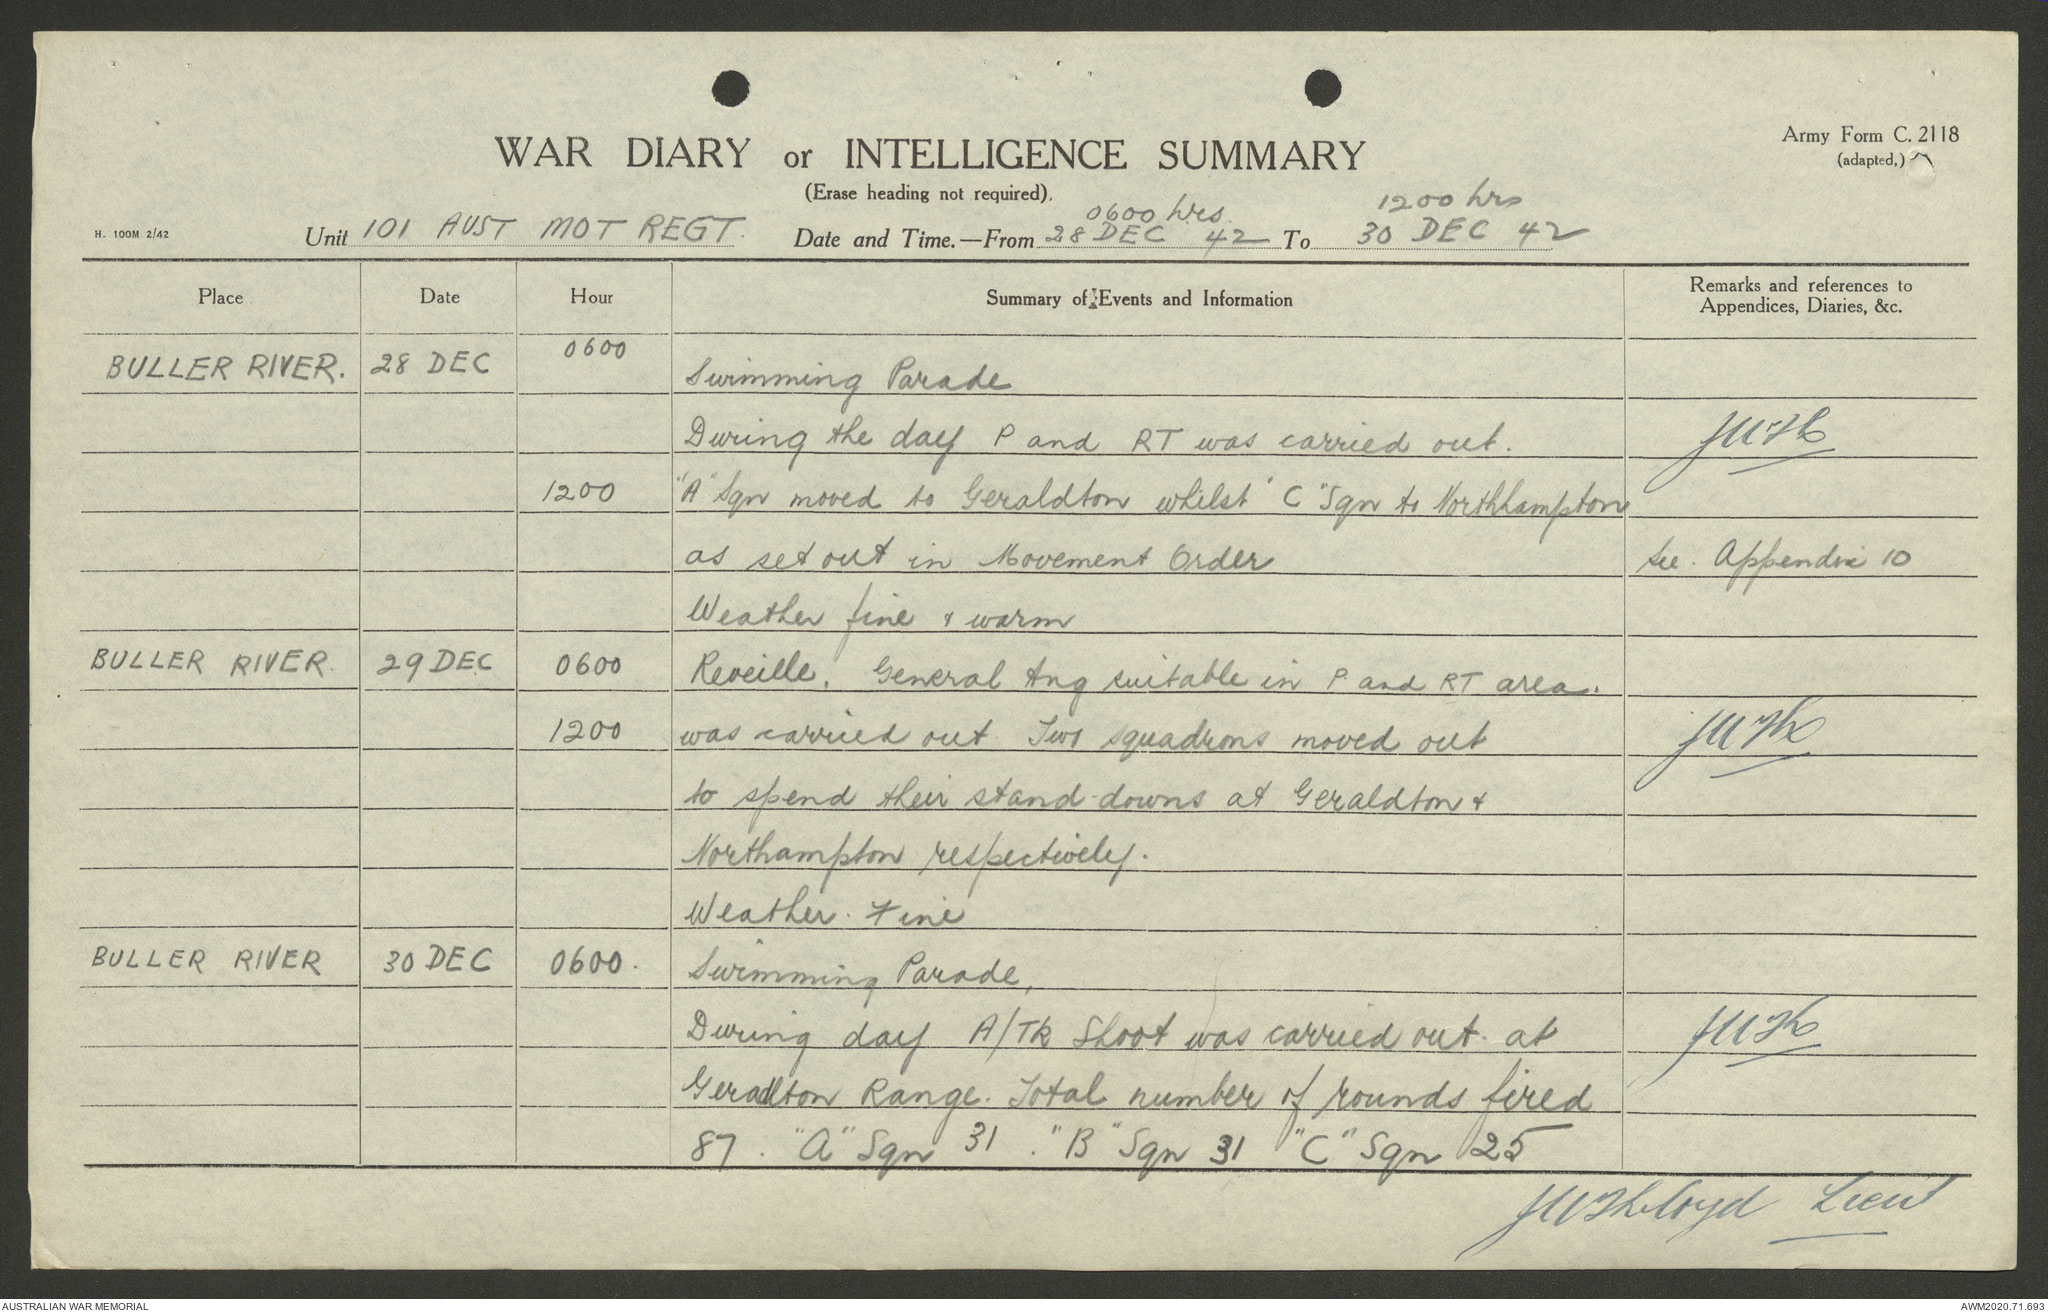 WAR DIARY or INTELLIGENCE SUMMARY
Army Form C. 2118
(adapted,)
(Erase heading not required).
0600 hrs. 1200 hrs
H. 100M 2/42 Unit 101 AUST MOT REGT. Date and Time.—From 28 DEC 42 To 30 DEC 42
Place Date Hour Summary of Events and Information Remarks and references to
Appendices, Diaries, &c.
BULLER RIVER. 28 DEC 0600 Swimming Parade
During the day P and RT was carried out.
1200 "A" Sqn moved to Geraldton whilst "C" Sqn to Northhampton
as set out in Movement Order See. Appendix 10
Weather fine & warm
BULLER RIVER. 29 DEC 0600 Reveille. General tng suitable in P and RT area.
1200 was carried out. Two squadrons moved out
to spend their stand-downs at Geraldton &
Northampton respectively.
Weather. Fine
BULLER RIVER 30 DEC 0600. Swimming Parade,
During day A/Tk Shoot was carried out. at
Geradlton Range. Total number of rounds fired
87. "A" Sqn 31. "B" Sqn 31 "C" Sqn 25
Lieut
AUSTRALIAN WAR MEMORIAL AWM2020.71.693